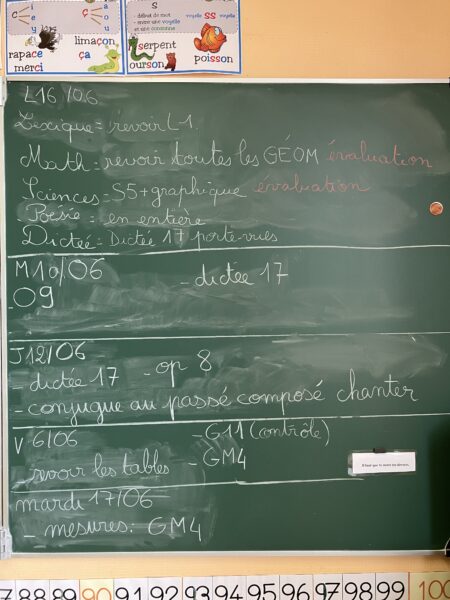 c
i
e
y
ç
a
o
u
rapace
merci
limaçon
ça
s
- début de mot
- entre une voyelle
et une consonne
serpent
ourson
voyelle ss voyelle
poisson
L16/06
Lexique = revoir L1.
Math = revoir toutes les GÉOM évaluation
Sciences = S5 + graphique évaluation
Poésie = en entière
Dictée = Dictée 17 porte-vues
M10/06 - dictée 17
09
J12/06
- dictée 17 - op 8
- conjugue au passé composé chanter
V 6/06 - G11 (contrôle)
revoir les tables - GM4
mardi 17/06
- mesures: GM4
88 89 90 91 92 93 94 95 96 97 98 99 100